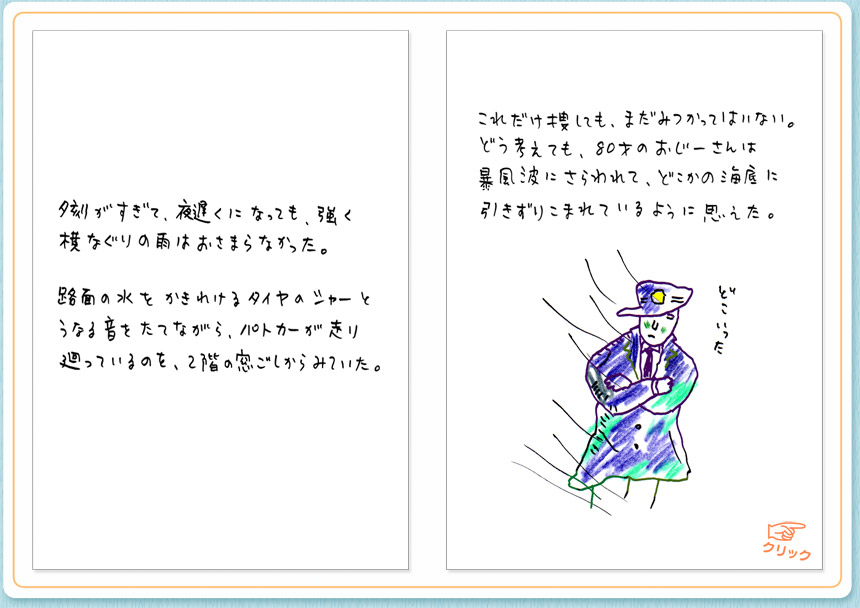 夕刻がすぎて、夜遅くになっても、強く
横なぐりの雨はおさまらなかった。
路面の水をかきわけるタイヤのシャーと
うなる音をたてながら、パトカーが走り
廻っているのを、2階の窓ごしからみていた。
これだけ捜しても、まだみつかってはいない。
どう考えても、80才のおじーさんは
暴風波にさらわれて、どこかの海底に
引きずりこまれているように思えた。
どこいった
クリック